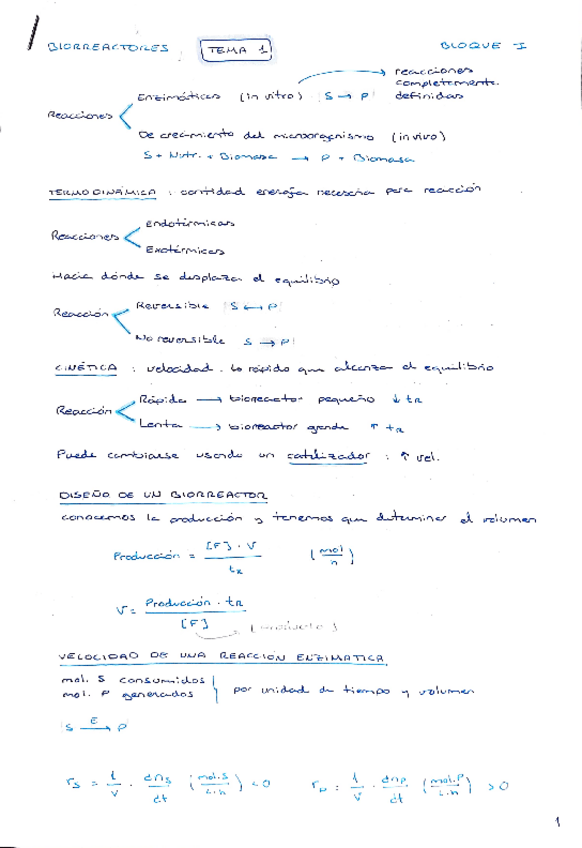 BIORREACTORES TEMA 1 BLOQUE I
Reacciones
Enzimáticas (in vitro) |S → P| → reacciones completamente. definidas
De crecimiento del microorganismo (in vivo)
S + Nutr. + Biomasa → P + Biomasa
TERMODINÁMICA : cantidad energía necesaria para reacción
Reacciones
Endotérmicas
Exotérmicas
Hacia dónde se desplaza el equilibrio
Reacción
Reversible |S ↔ P|
No reversible S → P|
CINÉTICA : velocidad. Lo rápido que alcanza el equilibrio
Reacción
Rápida → biorreactor pequeño ↓ tR
Lenta → biorreactor grande ↑ tR
Puede cambiarse usando un catalizador : ↑ vel.
DISEÑO DE UN BIORREACTOR
conocemos la producción y tenemos que determinar el volumen
Producción = [P] · V / tR (mol/h)
V = Producción · tR / [P]
[producto]
VELOCIDAD DE UNA REACCIÓN ENZIMÁTICA
mol. S consumidos
mol. P generados
por unidad de tiempo y volumen
|S E→ P|
rS = 1/V · dnS/dt (mol.S/L.h) < 0 rP = 1/V · dnP/dt (mol.P/L.h) > 0
1